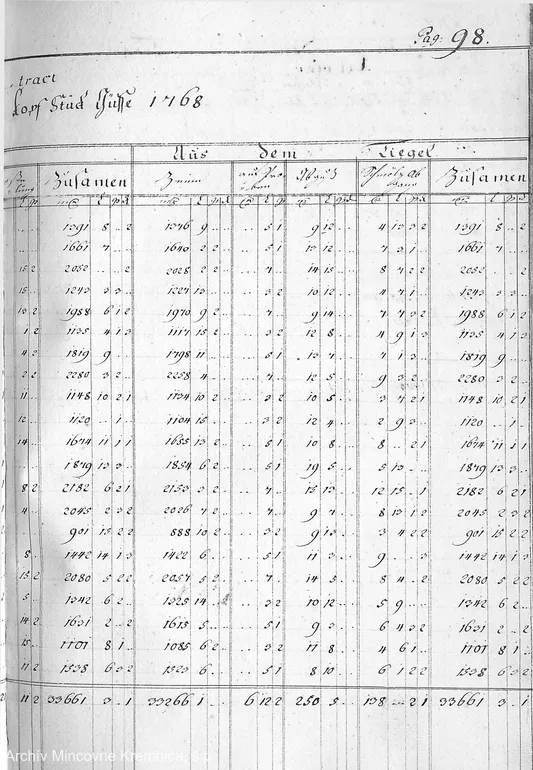 Pag: 98.
tract
Kopf Stück Güsse 1768
Aus dem Tiegel
Zusamen Zusamen
1391 8 .. 2 1376 9 5 1 9 12 4 13 3 2 1391 8 .. 2
1661 7 1640 2 2 5 1 13 12 7 3 1 1661 7
15 2 2052 2 2028 2 2 7 14 15 8 7 2 2 2052 2
15 1243 3 3 1227 13 3 2 10 12 4 7 1 1243 3 3
13 2 1988 6 1 2 1970 9 2 7 9 14 7 7 3 2 1988 6 1 2
1 2 1135 4 1 3 1117 15 2 3 2 12 8 4 9 1 3 1135 4 1 3
4 2 1819 9 1798 11 5 1 13 7 7 1 3 1819 9
2 2 2280 3 2 2258 4 7 12 5 9 3 2 2280 3 2
11 1148 10 2 1 1134 10 2 3 2 10 5 3 7 2 1 1148 10 2 1
12 1120 .. 1 1104 15 3 2 12 4 2 9 3 1120 1
14 1674 11 1 1 1655 13 2 5 1 10 8 8 .. 2 1 1674 11 1 1
1879 13 3 1854 6 2 5 1 19 5 5 13 1879 13 3
8 2 2182 6 2 1 2153 3 2 7 15 13 12 15 .. 1 2182 6 2 1
4 2045 2 3 2 2026 7 2 7 9 7 8 13 1 2 2045 2 3 2
901 15 2 2 888 10 2 3 2 9 13 3 4 2 2 901 15 2 2
8 1442 14 1 3 1422 6 5 1 11 3 9 .. 3 1442 14 1 3
15 2 2080 5 2 2 2057 5 2 7 14 5 8 4 .. 2 2080 5 2 2
5 1342 6 2 1325 14 3 2 10 12 5 9 1342 6 2
14 2 1631 2 .. 2 1615 5 5 1 9 3 6 4 3 2 1631 2 .. 2
15 1101 8 1 1085 6 2 3 2 11 8 4 6 1 1101 8 1
11 2 1538 6 3 2 1523 6 5 1 8 10 6 1 2 2 1538 6 3 2
11 2 33661 3 .. 1 33266 1 6 12 2 250 5 138 .. 2 1 33661 3 .. 1
Archív Mincovne Kremnica, š.p.